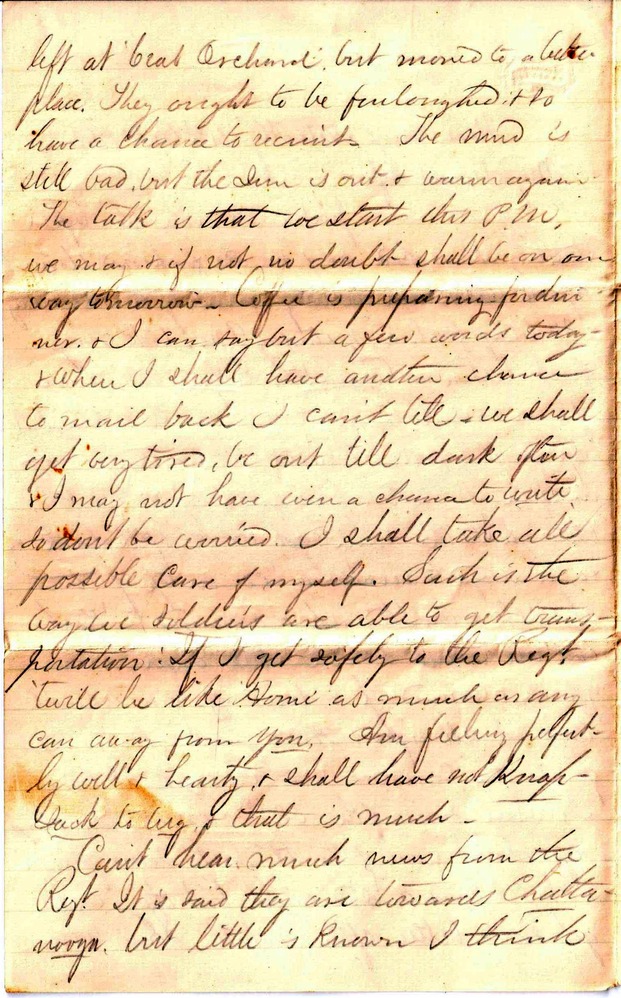 left at Crab Orchard, but moved to a better
place. They ought to be furloughed & to
have a chance to recruit. The mud is
still bad, but the Sun is out & warm again.
The talk is that we start this P.M.
we may & if not no doubt shall be on our
way tomorrow. Coffee is preparing for din-
ner. & I can say but a few words today
& when I shall have another chance
to mail back I can't tell - we shall
get very tired, be out till dark often
& I may not have even a chance to write
so don't be worried. I shall take all
possible care of myself. Such is the
way we soldiers are able to get trans-
portation. If I get safely to the Regt.
'twill be like Home as much as any
can away from you. Am feeling perfect-
ly well & hearty, & shall have not Knap-
sack to lug, & that is much -
Can't hear much news from the
Regt. It is said they are towards Chatta-
nooga. but little is known I think